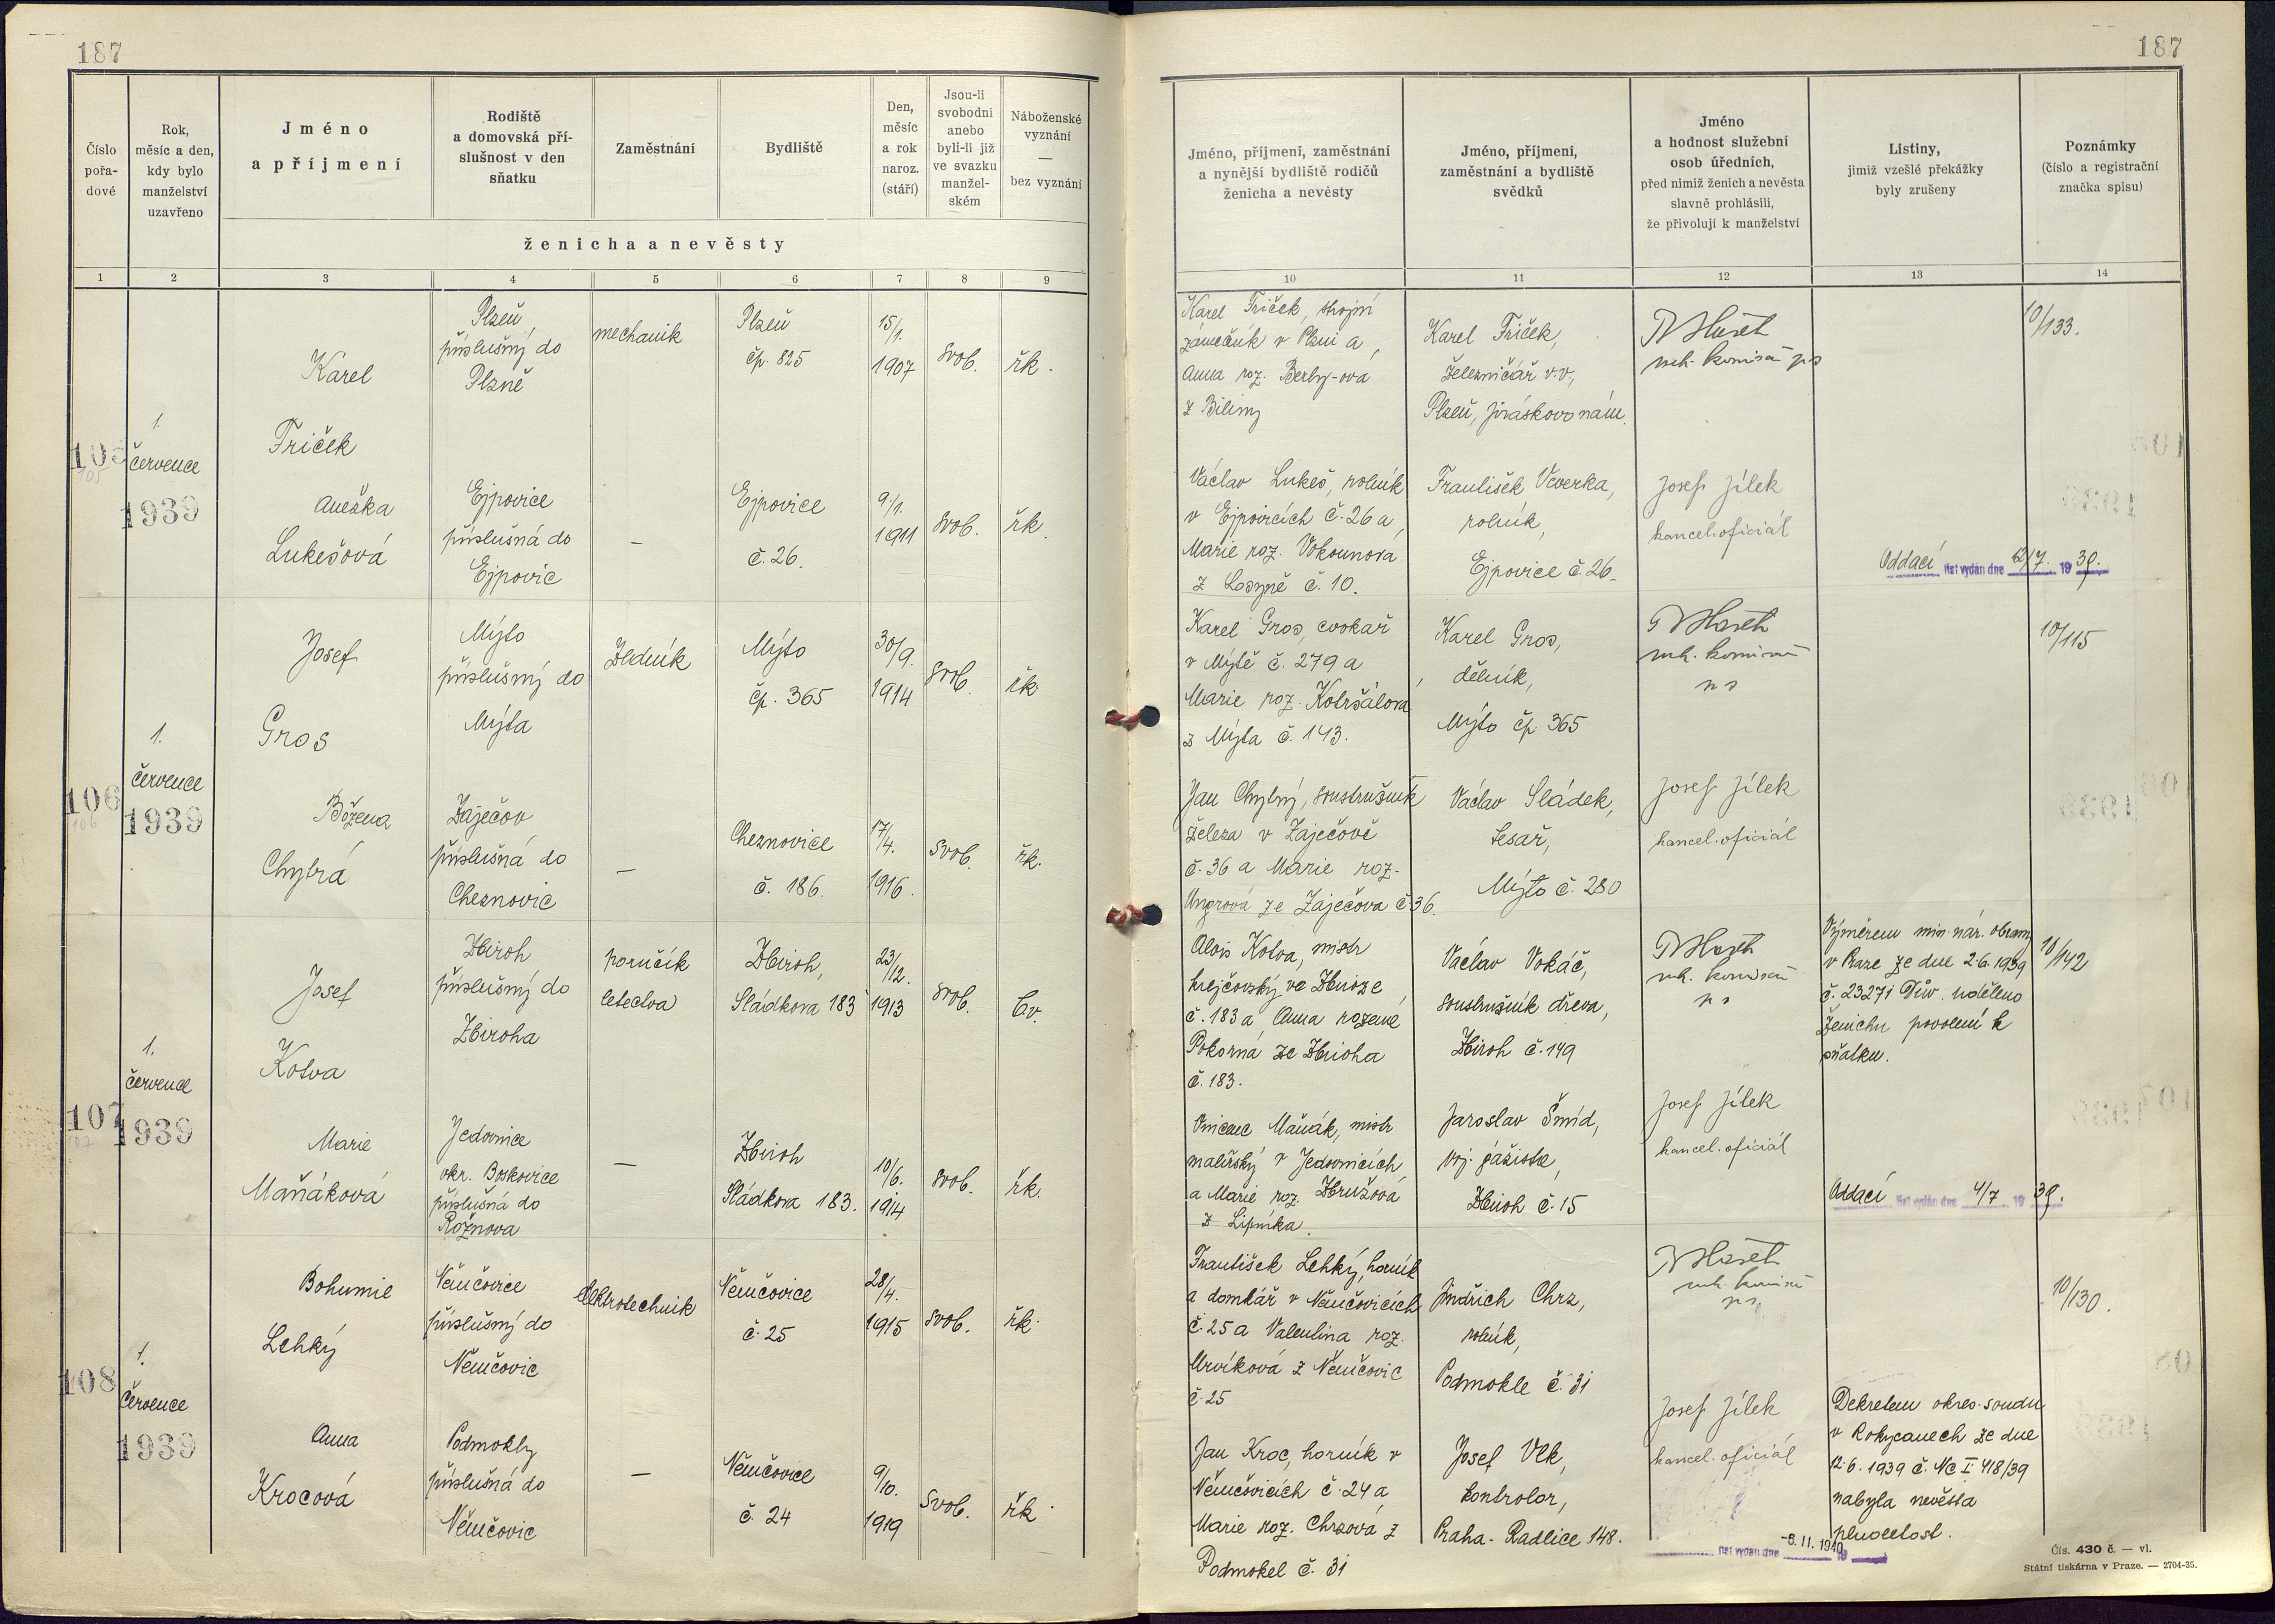 187
187
Číslo
pořa-
dové
Rok,
měsíc a den,
kdy bylo
manželství
uzavřeno
Jméno
a příjmení
Rodiště
a domovská pří-
slušnost v den
sňatku
Zaměstnání
Bydliště
Den,
měsíc
a rok
naroz.
(stáří)
Jsou-li
svobodni
anebo
byli-li již
ve svazku
manžel-
ském
Náboženské
vyznání
—
bez vyznání
ženicha a nevěsty
1 2 3 4 5 6 7 8 9
Jméno, příjmení, zaměstnání
a nynější bydliště rodičů
ženicha a nevěsty
Jméno, příjmení,
zaměstnání a bydliště
svědků
Jméno
a hodnost služební
osob úředních,
před nimiž ženich a nevěsta
slavně prohlásili,
že přivolují k manželství
Listiny,
jimiž vzešlé překážky
byly zrušeny
Poznámky
(číslo a registrační
značka spisu)
10 11 12 13 14
105
105
1.
července
1939
Karel
Friček
Plzeň,
příslušný do
Plzně
mechanik
Plzeň
čp. 825
15/1.
1907
svob.
řk.
Karel Friček, strojní
zámečník v Plzni a
Anna roz.
z Biliny
Karel Friček,
železničář v.v.,
Plzeň, Jiráskovo nám.
10/133.
Anežka
Lukešová
Ejpovice
příslušná do
Ejpovic
—
Ejpovice
č. 26.
9/1.
1911
svob.
řk.
Václav Lukeš, rolník
v Ejpovicích č. 26 a
Marie roz. Vokounová
z č. 10.
František Veverka,
rolník,
Ejpovice č. 26.
Josef Jílek
kancel. oficiál
Oddací list vydán dne 12/7. 1939.
106
106
1.
července
1939
Josef
Gros
Mýto
příslušný do
Mýta
Zedník
Mýto
čp. 365
30/9.
1914
svob.
řk.
Karel Gros, cvokař
v Mýtě č. 279 a
Marie roz. Kotršálová
z Mýta č. 143.
Karel Gros,
dělník,
Mýto čp. 365
10/115
Božena
Chytrá
Zaječov
příslušná do
Cheznovic
—
Cheznovice
č. 186.
17/4.
1916.
svob.
řk.
Jan Chytrý, soustružník
železa v Zaječově
č. 36 a Marie roz.
Ungrová ze Zaječova č. 36.
Václav Sládek,
tesař,
Mýto č. 280
Josef Jílek
kancel. oficiál
107
107
1.
července
1939
Josef
Kotva
Zbiroh
příslušný do
Zbiroha
poručík
letectva
Zbiroh,
Sládkova 183
23/12.
1913
svob.
bv.
Alois Kotva, mistr
krejčovský ve Zbiroze
č. 183 a Anna rozená
Pokorná ze Zbiroha
č. 183.
Václav Vokáč,
soustružník dřeva,
Zbiroh č. 149
Výměrem min. nár. obrany
v Praze ze dne 2.6.1939
č. 23271 Dův. uděleno
ženichu povolení k
sňatku.
10/142
Marie
Maňáková
Jedovnice
okr. Boskovice
příslušná do
Rožnova
—
Zbiroh
Sládkova 183.
10/6.
1914
svob.
řk.
Vincenc Maňák, mistr
malířský v Jedovnicích
a Marie roz. Hrušová
z Lipníka.
Jaroslav Šmíd,
voj. gážista,
Zbiroh č. 15
Josef Jílek
kancel. oficiál
Oddací list vydán dne 4/7 1939.
108
1.
července
1939
Bohumil
Lehký
Němčovice
příslušný do
Němčovic
elektrotechnik
Němčovice
č. 25
28/4.
1915
svob.
řk.
František Lehký, horník
a domkář v Němčovicích
č. 25 a Valentina roz.
Mrvíková z Němčovic
č. 25
Jindřich Chrz,
rolník,
Podmokle č. 31
10/130.
Anna
Krocová
Podmokly
příslušná do
Němčovic
—
Němčovice
č. 24
9/10.
1919
svob.
řk.
Jan Kroc, horník v
Němčovicích č. 24 a
Marie roz. Chrzová z
Podmokel č. 31
Josef Vlk,
kontrolor,
Praha-Radlice 148.
Josef Jílek
kancel. oficiál
Dekretem okres. soudu
v Rokycanech ze dne
12.6.1939 č. Nc I 418/39
nabyla nevěsta
plnoletost.
list vydán dne -6. 11. 1940 19
Čís. 430 č. — vl.
Státní tiskárna v Praze. — 2704-35.